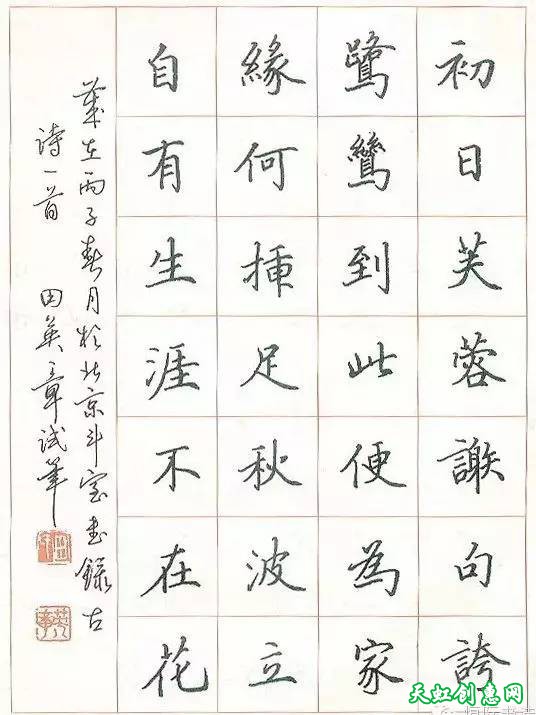 初日芙蓉謝句誇
鷺鸞到此便為家
緣何插足秋波立
自有生涯不在花
歲在丙子春月於北京斗室書錄古
诗一首 田英章试筆
天虹创意网